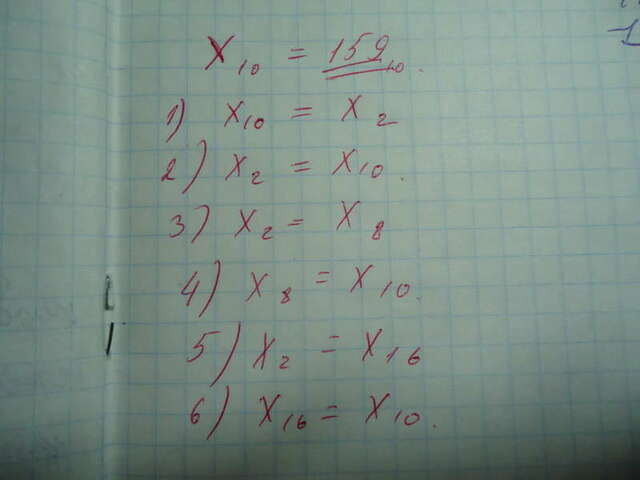 X₁₀ = 159₁₀.
1) X₁₀ = X₂
2) X₂ = X₁₀.
3) X₂ = X₈
4) X₈ = X₁₀.
5) X₂ = X₁₆
6) X₁₆ = X₁₀.